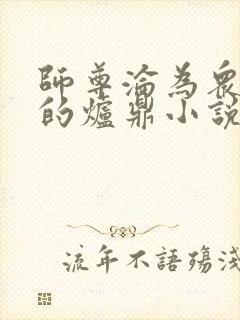 師尊淪為眾
的爐鼎小說
流年不語殤淺